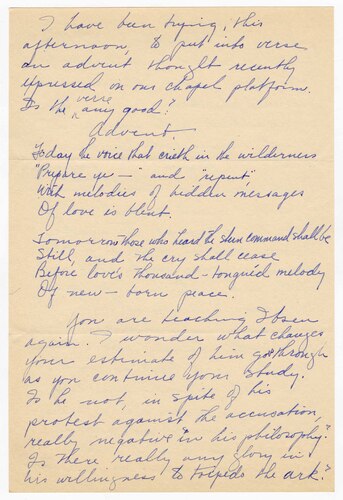 I have been trying, this
afternoon, to put into verse
an advent thought recently
expressed on our chapel platform.
Is the verse any good?
Advent.
Today the voice that crieth in the wilderness
"Prepare ye — " and "repent"
With melodies of hidden messages
Of love is blent.
Tomorrow those who heard the stern command shall be
Still, and the cry shall cease
Before love's thousand-tongued melody
Of new-born peace.
You are teaching Ibsen
again. I wonder what changes
your estimate of him goes through
as you continue your study.
Is he not, in spite of his
protest against the accusation,
really negative in his philosophy?
Is there really any glory in
his willingness "to torpedo the ark"?